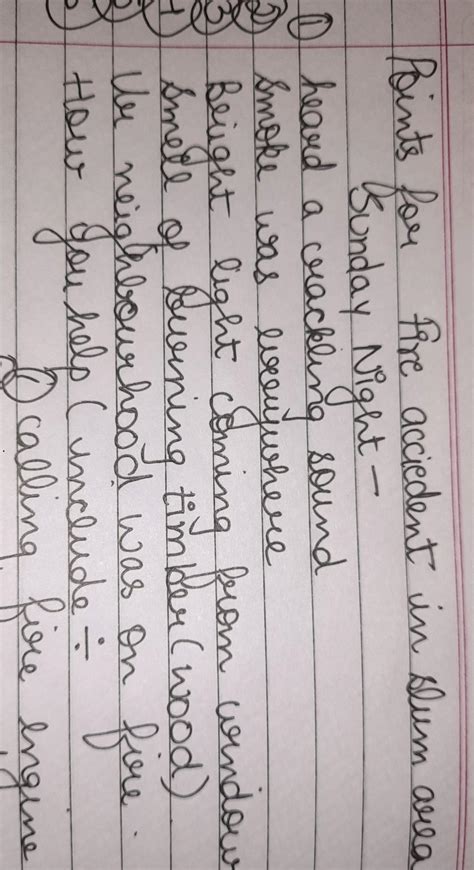 Points for fire acciedent in slum area
Sunday Night -
① heard a crackling sound
② Smoke was everywhere
③ Bright light coming from window
Smell of burning timber (wood)
Ur neighbourhood was on fire.
How you help (include ÷
① calling fire engine